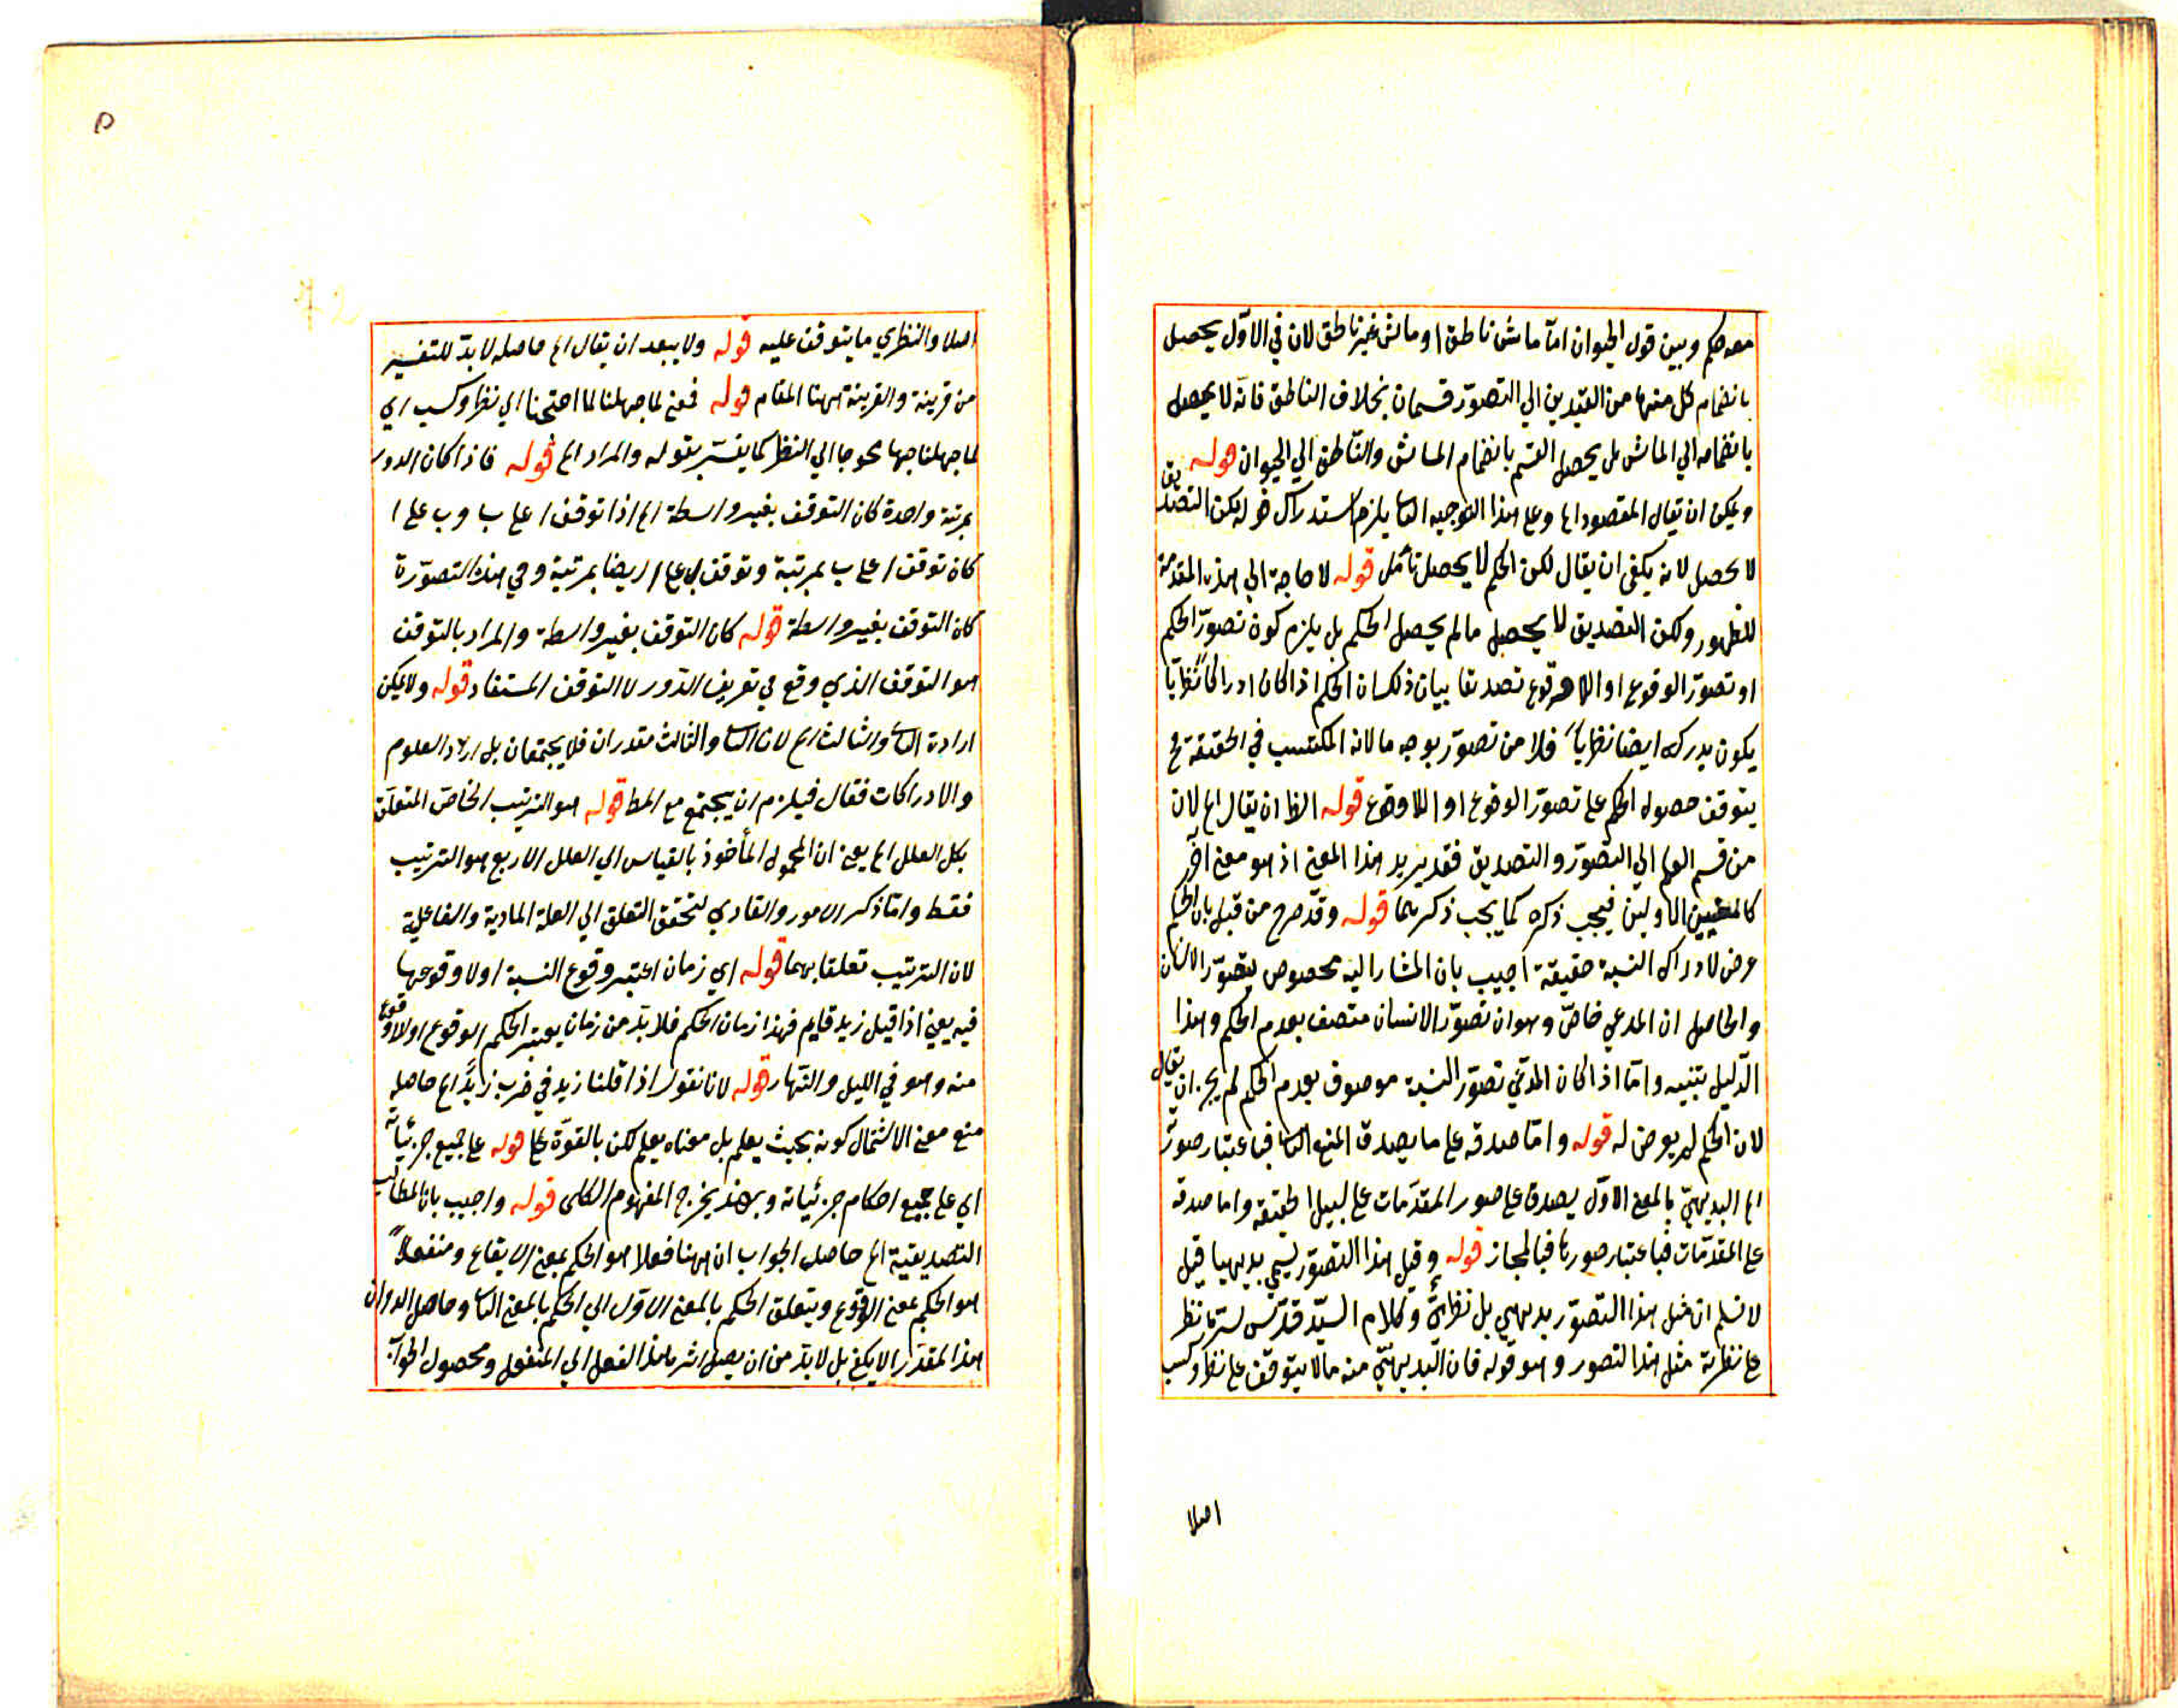 معه حكم وبين قول الحيوان اما ماش ناطق او ماش غير ناطق لان في الاوّل يحصل
بانضمام كل منهما من القيدين الي التصوّر قسمان بخلاف الناطق فانّه لا يحصل
بانضمامه الي الماش بل يحصل القسم بانضمام الماش والنّاطق الي الحيوان قوله
ويمكن ان يقال المقصود اه وعلى هذا التوجيه الثا يلزم استدراك قوله لكن التصديق
لا يحصل لانه يكفي ان يقال لكن الحكم لا يحصل تأمّل قوله لا حاجة الي هذه المقدّمة
للظهور ولكن التصديق لا يحصل ما لم يحصل الحكم بل يلزم كون تصوّر الحكم
او تصوّر الوقوع او اللاوقوع تصديقا بيان ذلك ان الحكم اذا كان ادراكا نظريّا
يكون يدركه ايضا نظريا فلا من تصوّر بوجه ما لانه المكتسب في الحقيقة فح
يتوقف حصول الحكم على تصوّر الوقوع او اللاوقوع قوله الظا ان يقال اه لان
من قسم العلم الي التصوّر والتصديق فقد يريد هذا المعنى اذ هو معنى آخر
كالمعنيين الاولين فيجب ذكره كما يجب ذكرهما قوله وقد صرح من قبل بان الحكم
عرض لادراك النسبة حقيقة اجيب بان المشار اليه مخصوص بتصوّر الانسان
والحاصل ان المدعي خاصّ وهو ان تصوّر الانسان متصف بعدم الحكم وهذا
الدّليل ينبيه وامّا اذا كان المدّعي تصوّر النسبة موصوف بعدم الحكم لم يجز ان يقال
لان الحكم لم يعرض له قوله وامّا صدقه على ما يصدق المعنى الثا فباعتبار صورته
اه البديهيّ بالمعنى الاوّل يصدق على صور المقدّمات على سبيل الحقيقة واما صدقه
على المقدّمات فباعتبار صورتها فبالمجاز قوله وقيل هذا التصوّر يسمّي بديهيا قيل
لا نسلم ان مثل هذا التصوّر بديهي بل نظريّ وكلام السيّد قدّس سرّه ناظر
على نظرية مثل هذا التصور وهو قوله فان البديهيّ منه ما لا يتوقف على نظر وكسب
اصلا
٥
اصلا والنظري ما يتوقف عليه قوله ولا يبعد ان يقال اه حاصله لا بدّ للتفسير
من قرينة والقرينة ههنا المقام قوله فمعنى لما جهلنا لما احتجنا الي نظر وكسب اي
لما جهلنا جهلا محوجا الي النظر كما يفسّر بقوله والمراد اه قوله فاذا كان الدور
بمرتبة واحدة كان التوقف بغير واسطة اه اذا توقف ا على ب وب على ا
كان توقف ا على ب بمرتبة وتوقف ب على ا ايضا بمرتبة وفي هذه التصوّرة
كان التوقف بغير واسطة قوله كان التوقف بغير واسطة والمراد بالتوقف
هو التوقف الذي وقع في تعريف الدّور لا التوقف المستفاد قوله ولا يمكن
ارادة الثا والثالث اه لان الثا والثالث مقدران فلا يجتمعان بل اراد العلوم
والادراكات فقال فيلزم ان يجتمع مع المط قوله هو الترتيب الخاصّ المتعلّق
بكل العلل اه يعنى ان المحمول المأخوذ بالقياس الي العلل الاربع هو الترتيب
فقط وامّا ذكر الامور والقادي لتحقق التعلق الي العلة المادية والفاعلية
لان الترتيب تعلقا بهما قوله اي زمان اعتبر وقوع النسبة او لا وقوعها
فيه يعنى اذا قيل زيد قايم فهذا زمان الحكم فلا بدّ من زمان يعتبر الحكم الوقوع او لا وقوع
منه وهو في الليل والنّهار قوله لانا نقول اذا قلنا زيد في ضرب زيدًا اه حاصله
منع معنى الاشتمال كونه بحيث يعلم بل معناه يعلم لكن بالقوّة قوله على جميع جزئياته
اي على جميع احكام جزئياته وبهذا يخرج المفهوم الكلى قوله واجيب بان المطالب
التصديقية اه حاصل الجواب ان ههنا فعلا هو الحكم بمعنى الايقاع ومنفعلا
هو الحكم بمعنى الوقوع ويتعلق الحكم بالمعنى الاوّل الي الحكم بالمعنى الثا وحاصل
هذا المقدار لا يكفى بل لا بدّ من ان يصل اثر هذا الفعل الي المنفعل ومحصول الجواب